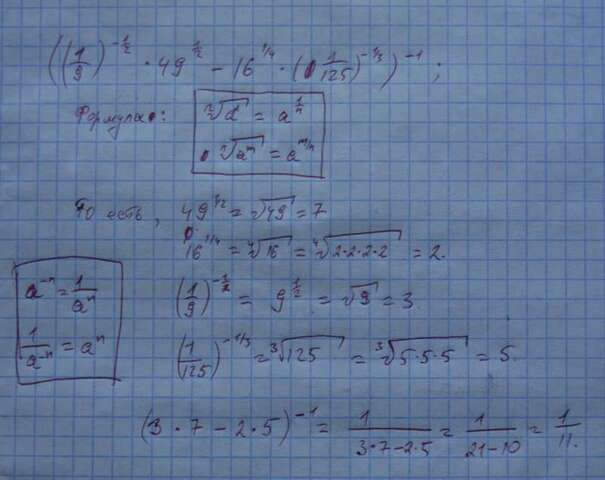 ((1/9)^(-1/2) · 49^(1/2) - 16^(1/4) · (1/125)^(-1/3))^(-1);
Формула:
ⁿ√a = a^(1/n)
ⁿ√a^m = a^(m/n)
То есть, 49^(1/2) = √49 = 7
16^(1/4) = ⁴√16 = ⁴√2·2·2·2 = 2.
a^(-n) = 1/a^n
(1/9)^(-1/2) = 9^(1/2) = √9 = 3
1/a^(-n) = a^n
(1/125)^(-1/3) = ³√125 = ³√5·5·5 = 5.
(3 · 7 - 2 · 5)^(-1) = 1/(3·7-2·5) = 1/(21-10) = 1/11.